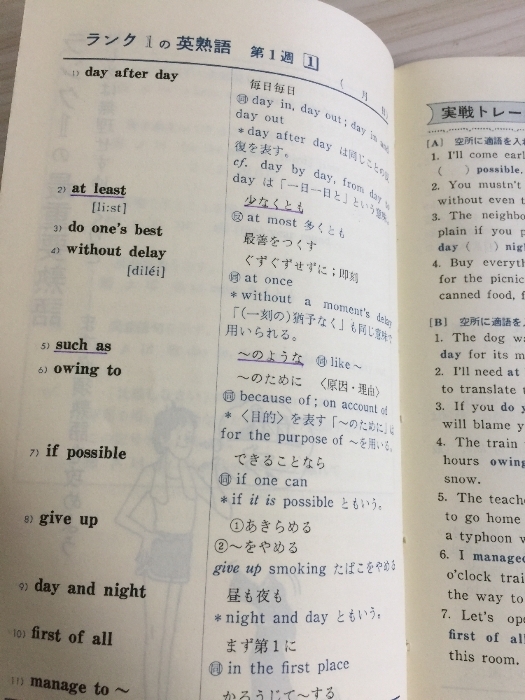 ランク1の英熟語 第1週 1
( 月
1) day after day
毎日毎日
同 day in, day out ; day in and
day out
*day after day は同じことの
復を表す。
cf. day by day, from day to
day は「一日一日と」という意味。
2) at least
[li:st]
少なくとも
反 at most 多くとも
3) do one's best
最善をつくす
4) without delay
[diléi]
ぐずぐずせずに；即刻
同 at once
*without a moment's delay
「(一刻の)猶予なく」も同じ意味で
用いられる。
5) such as
〜のような 同 like〜
6) owing to
〜のために 〈原因・理由〉
同 because of ; on account of
*〈目的〉を表す「〜のために」は
for the purpose of 〜を用いる。
7) if possible
できることなら
同 if one can
*if it is possible ともいう。
8) give up
①あきらめる
②〜をやめる
give up smoking たばこをやめる
9) day and night
昼も夜も
*night and day ともいう。
10) first of all
まず第1に
同 in the first place
11) manage to 〜
かろうじて〜する
実戦トレー
[A] 空所に適語を入れ
1. I'll come earl
( ) possible.
2. You mustn't
without even t
3. The neighbo
plain if you p
day ( ) nig
4. Buy everyth
for the picnic
canned food, f
[B] 空所に適語を
1. The dog wa
day for its m
2. I'll need at
to translate t
3. If you do y
will blame y
4. The train
hours owing
snow.
5. The teache
to go home
a typhoon w
6. I managed
o'clock trai
the way to
7. Let's ope
first of all
this room.